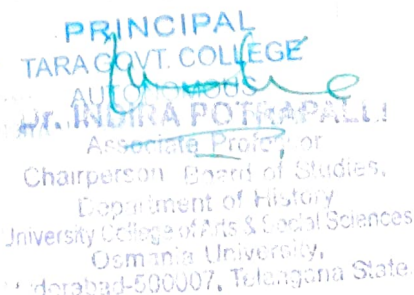 PRINCIPAL
TARA GOVT. COLLEGE
AUTONOMOUS
Dr. INDIRA POTHAPALLI
Associate Professor
Chairperson Board of Studies,
Department of History
University College of Arts & Social Sciences
Osmania University,
Hyderabad-500007, Telangana State